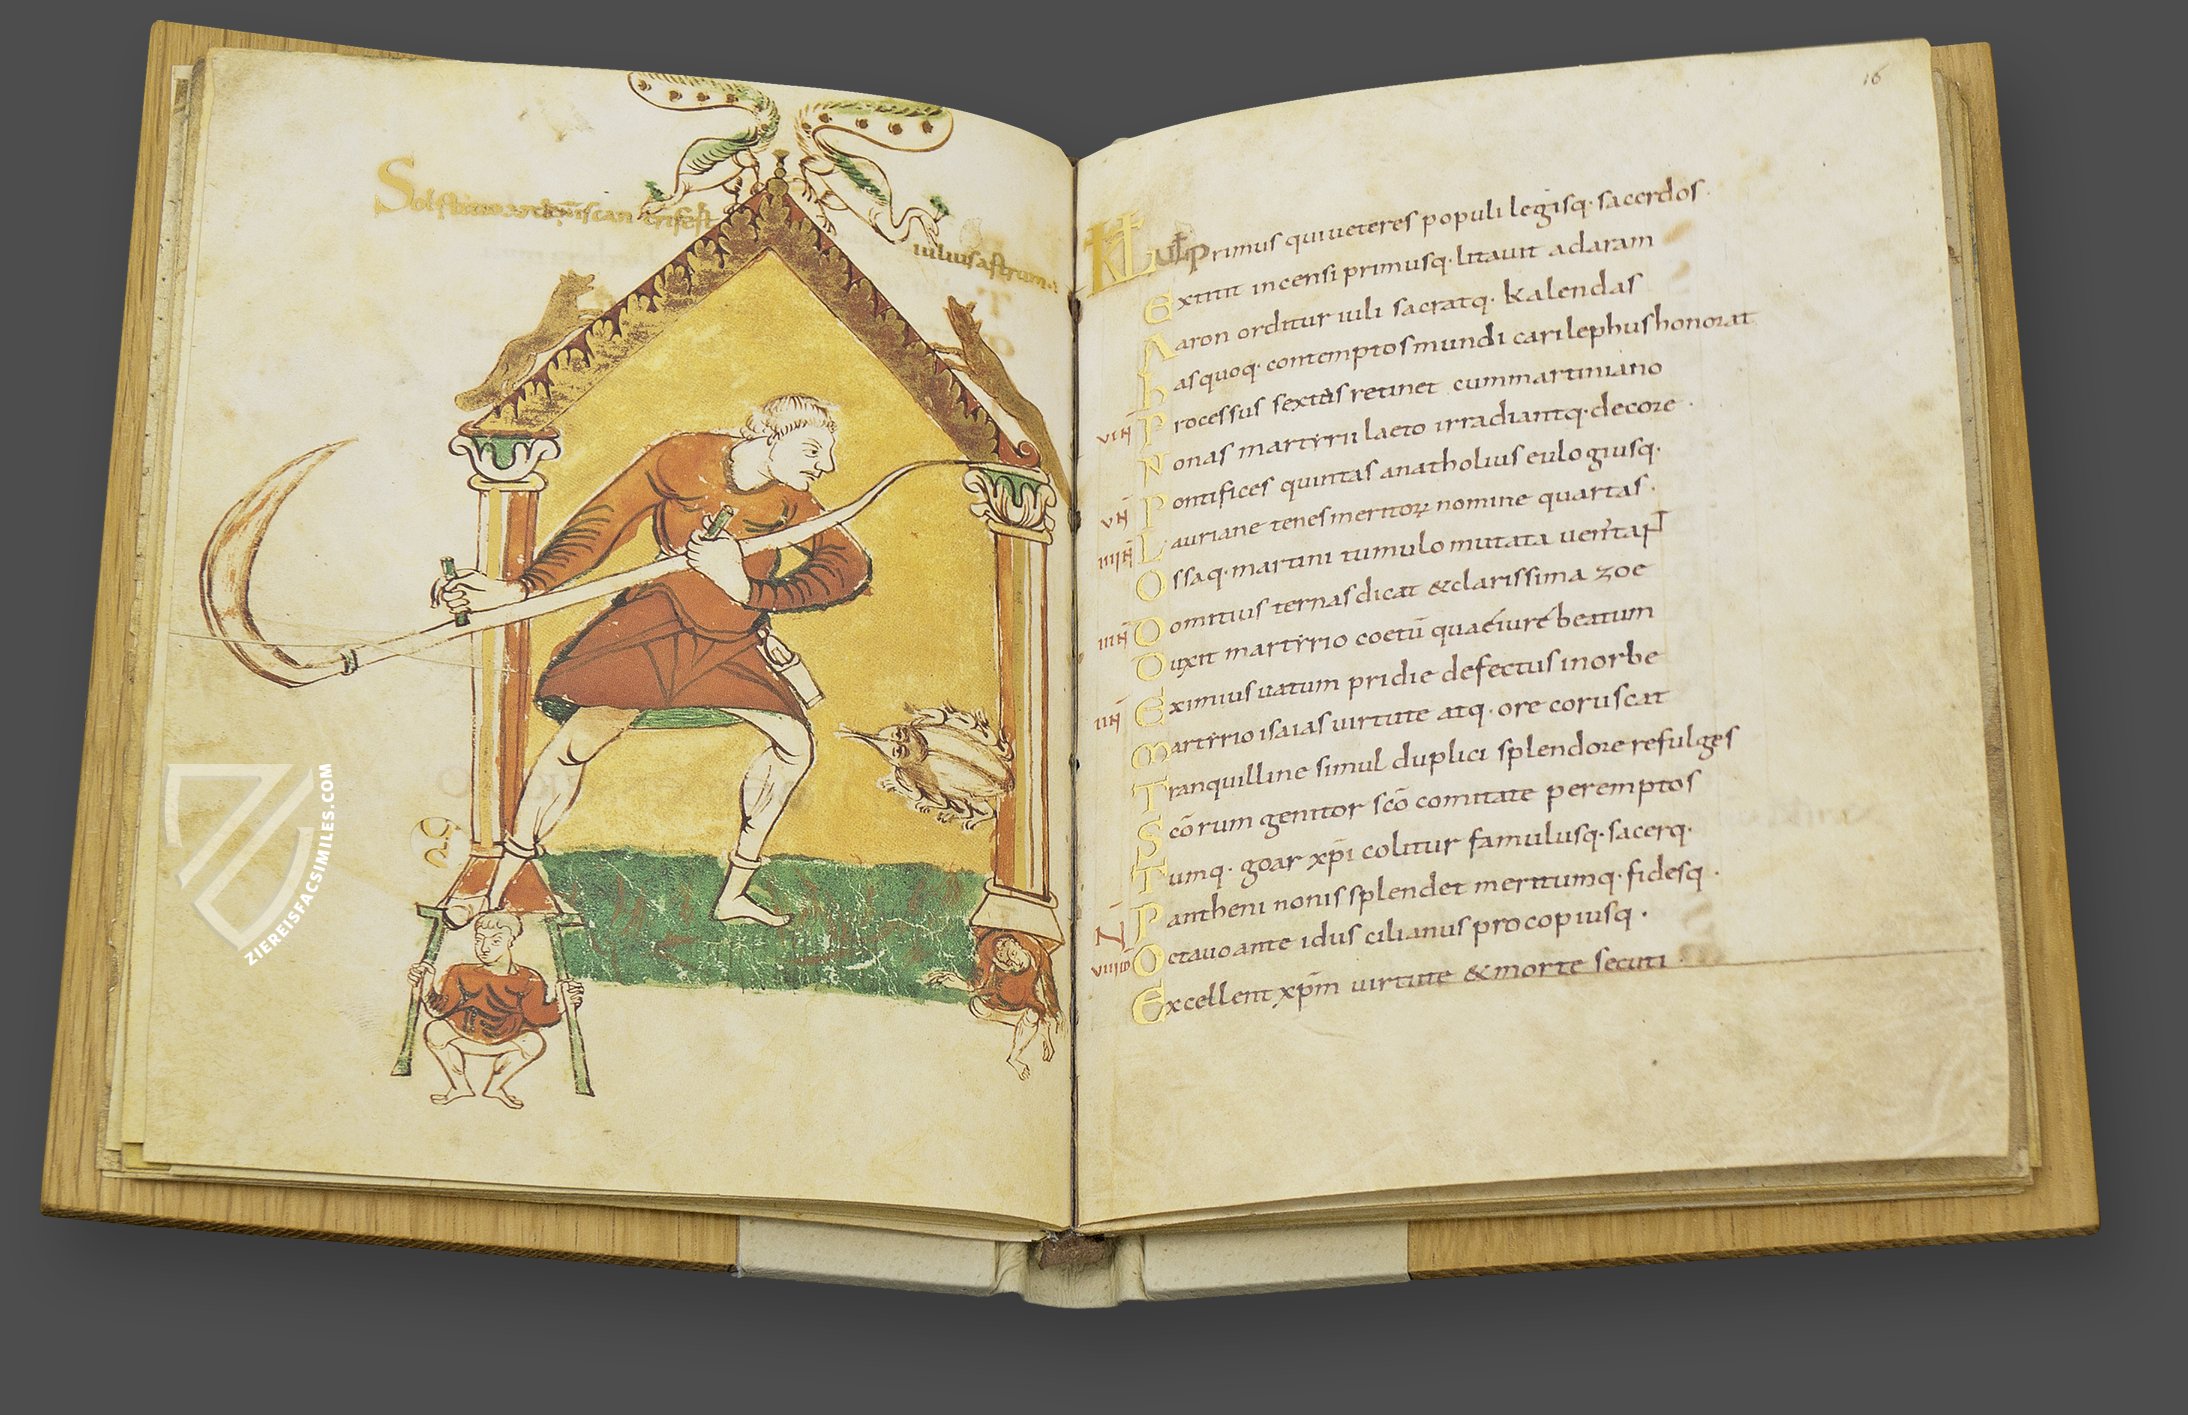 Solstitio ardentis cancri fert
iulius astrum
ZIEREISFACSIMILES.COM
16
KL iul Primus qui ueteres populi legisq· sacerdos·
Extitit incensi primusq· litauit ad aram
Aaron orditur iuli sacratq· kalendas
has quoq· contemptos mundi carilephus honorat
VI N̄ Processus sextas retinet cum martiniano
Nonas martyrii laeto irradiantq· decore·
V N̄ Pontifices quintas anatholius eulogiusq·
IIII N̄ Lauriane tenes meritoꝝ nomine quartas·
Ossaq· martini tumulo mutata
III N̄ Domitius ternas dicat & clarissima zoe
Duxit martyrio coetū beatum
II N̄ Eximius uatum pridie defectus in orbe
martyrio isaias uirtute atq· ore coruscat
Tranquilline simul duplici splendore refulges
Scōrum genitor scō comitate peremptos
Tumq· goar xp̄i colitur famulusq· sacerq·
N̄ Pantheni nonis splendet meritumq· fidesq·
VIII ID Octauo ante idus cilianus procopiusq·
Excellent xp̄m uirtute & morte secuti